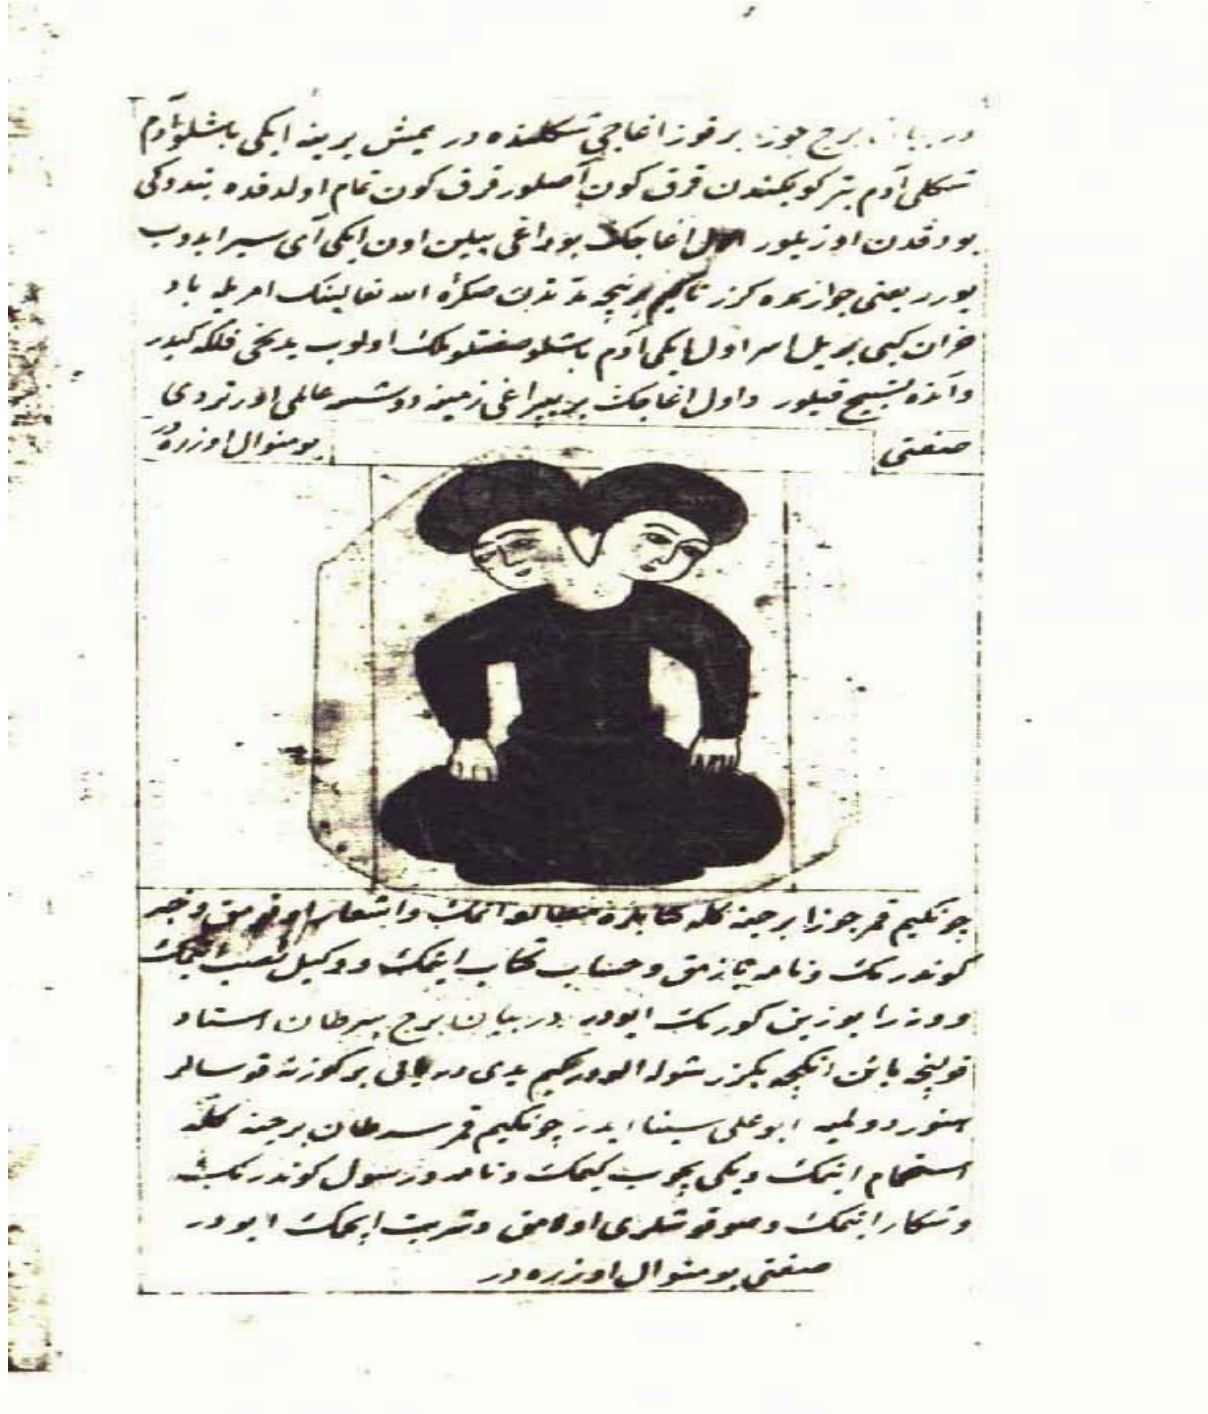 در بیان برج جوزا بر قوز اغاجی شکلنده در یمش یرینه ایکی باشلو آدم
شکلی آدم بتر کوبکندن قرق کون آصلور قرق کون تمام اولدقده بتدوکی
بوداقدن اوزیلور اول اغاجک بوداغی ییلن اون ایکی آی سیر ایدوب
یورر یعنی جوازنده کزر تاکیم برنیچه مدتدن صکره الله تعالینک امریله باد
خزان کبی بر یل اسر اول ایکی آدم باشلو صفتلو ملک اولوب یدنجی فلکه کیدر
و آنده تسبیح قیلور و اول اغاجک بر یپراغی زمینه دوشسه عالمی اورتردی
صفتی بو منوال اوزره در
چونکیم قمر جوزا برجنه کله کتابلره مطالعه اتمک و اشعار اوقومق و خبر
کوندرمک و نامه یازمق و حساب کتاب ایتمک و وکیل نصب ایتمک
و وزرا یوزین کورمک ایودر در بیان برج سرطان استاد
قولنجه باشی انکچه بکزر شوله اولورکیم یدی دریایی بر کوزنه قوسالر
ابو علی سینا ایدر چونکیم قمر سرطان برجنه کله
استحمام ایتمک و یکی بچوب کیمک و نامه و رسول کوندرمک
و شکار ایتمک و صو قوشلری اولامق و شربت ایچمک ایودر
صفتی بو منوال اوزره در